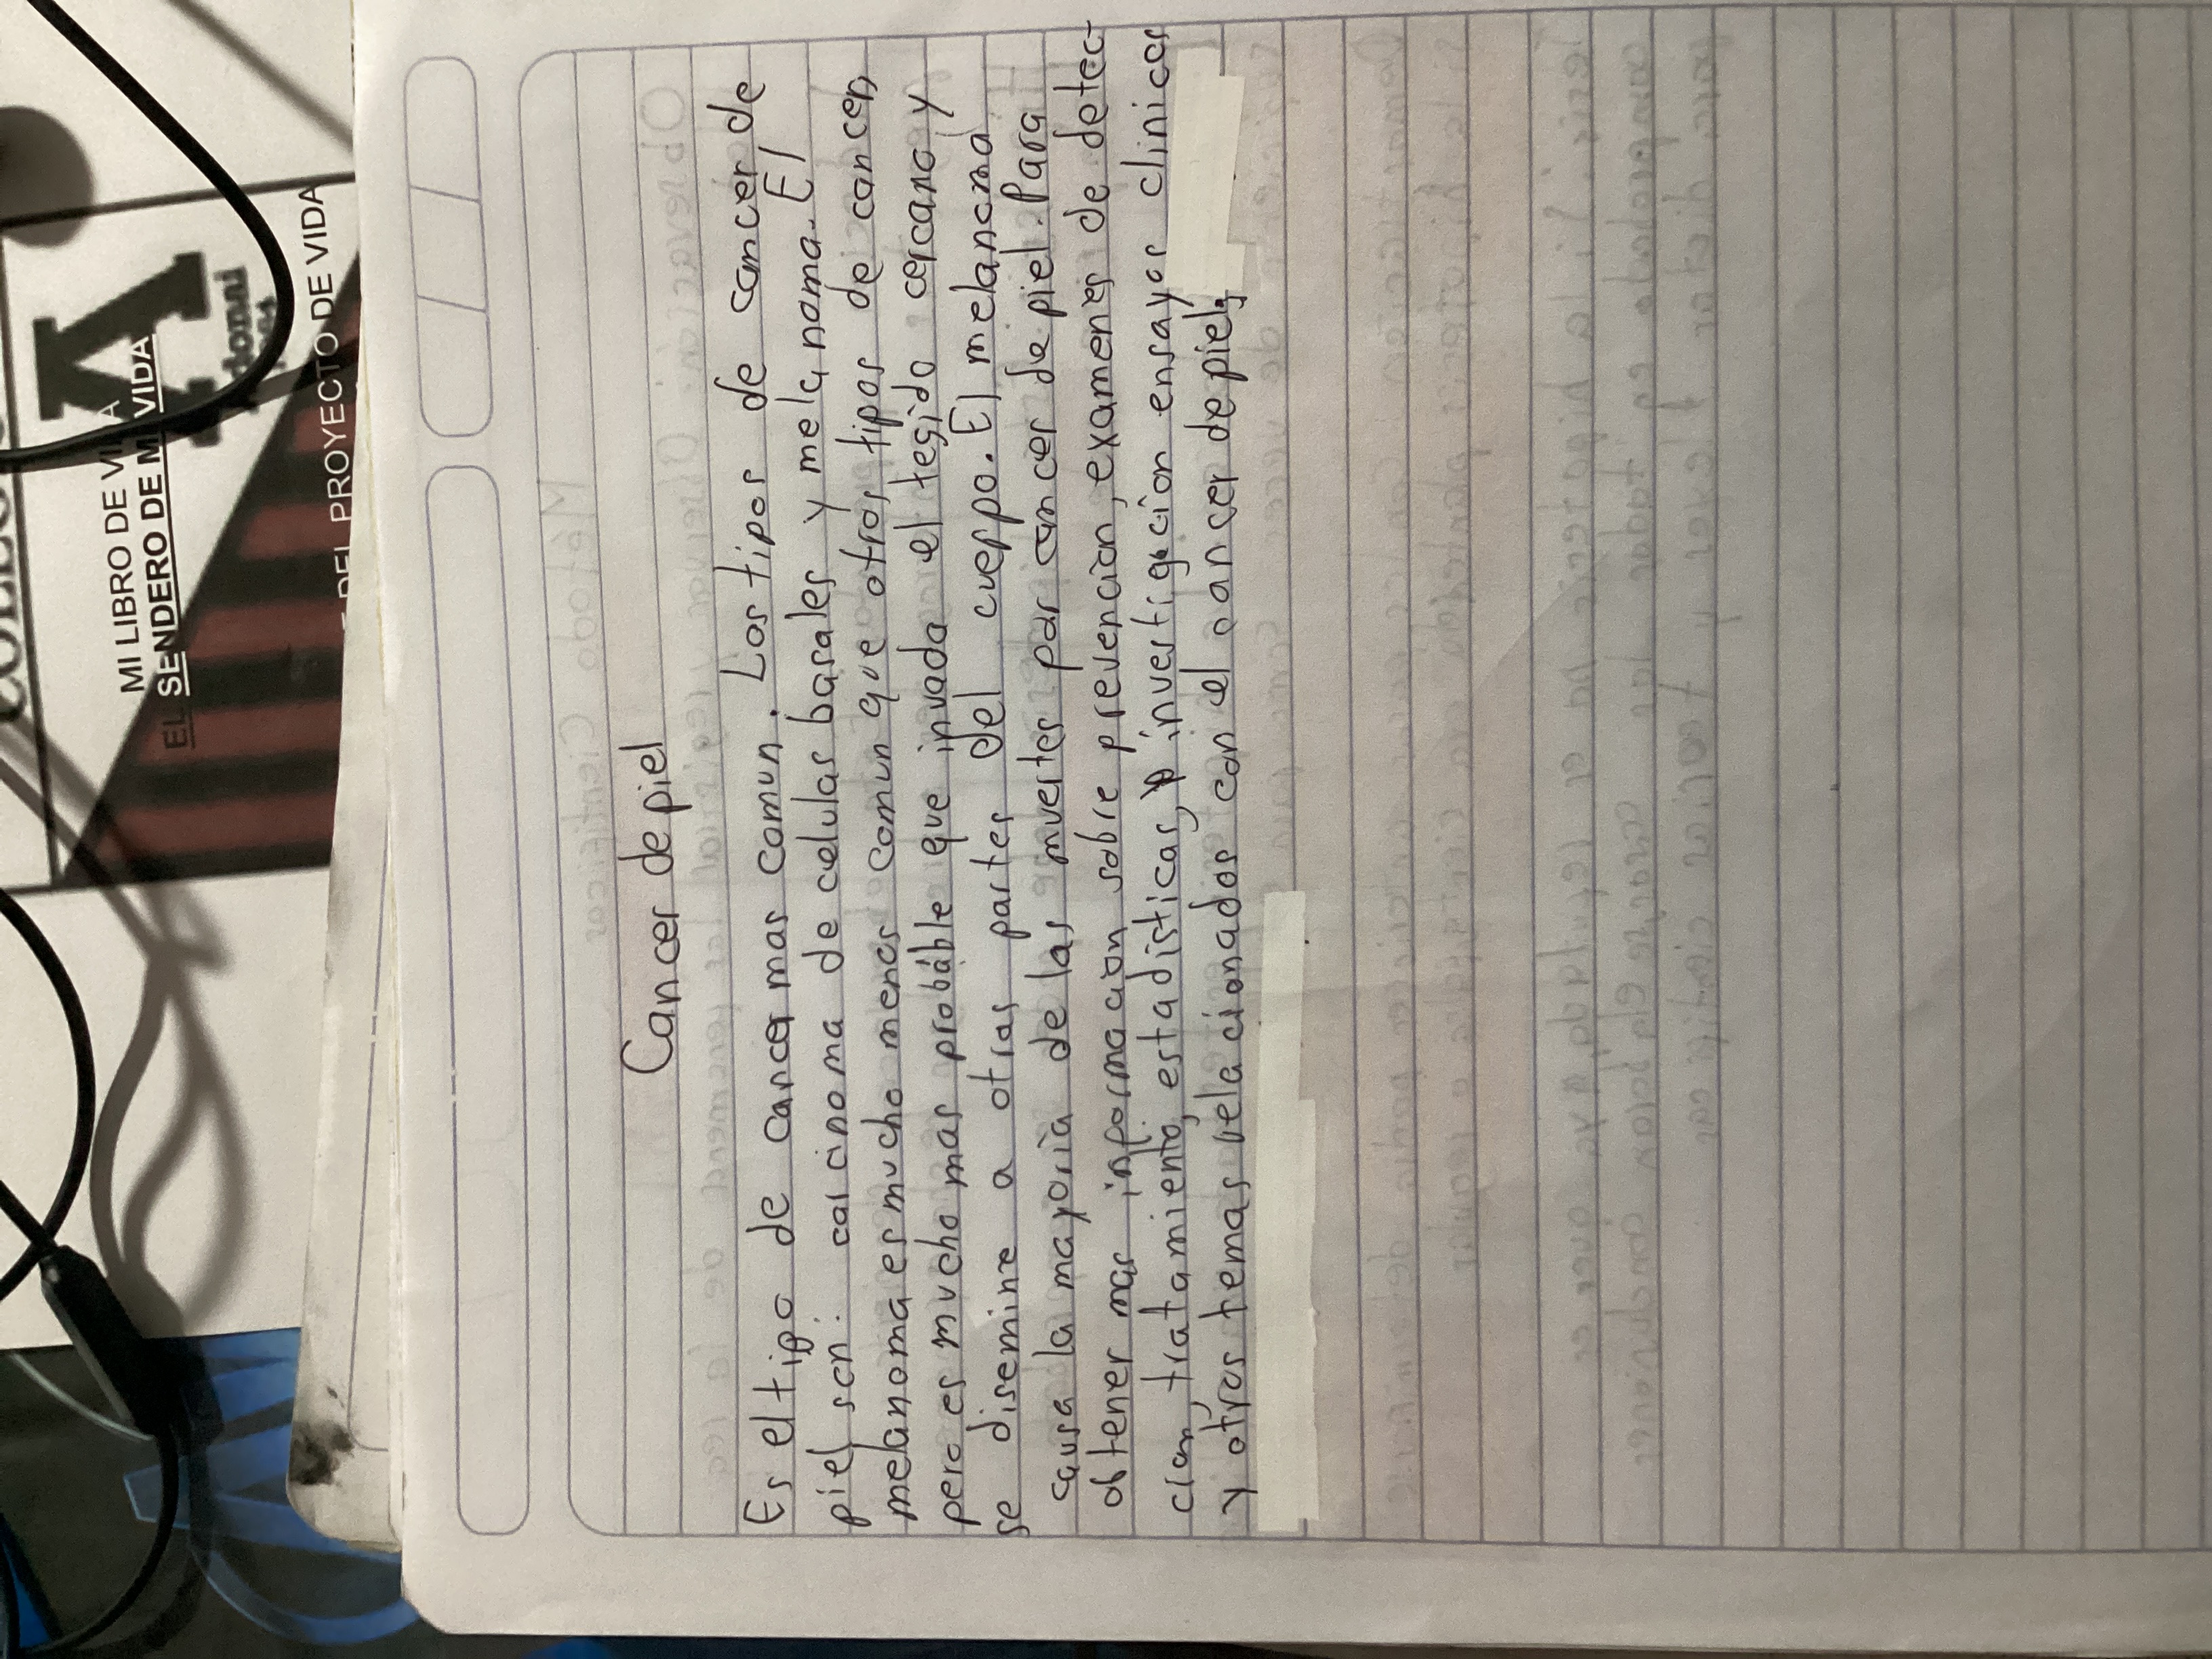 MI LIBRO DE VIDA
EL SENDERO DE MI VIDA
DEL PROYECTO DE VIDA
Cancer de piel
Es el tipo de cancer mas comun. Los tipos de cancer de
piel son: carcinoma de celulas basales y melanoma. El
melanoma es mucho menos comun que otros tipos de cancer,
pero es mucho mas probable que invada el tegido cercano y
se disemine a otras partes del cuerpo. El melanoma
causa la mayoria de las muertes por cancer de piel. Para
obtener mas informacion sobre prevencion, examenes de detec-
cion, tratamiento, estadisticas, investigacion ensayos clinicos
y otros temas relacionados con el cancer de piel.